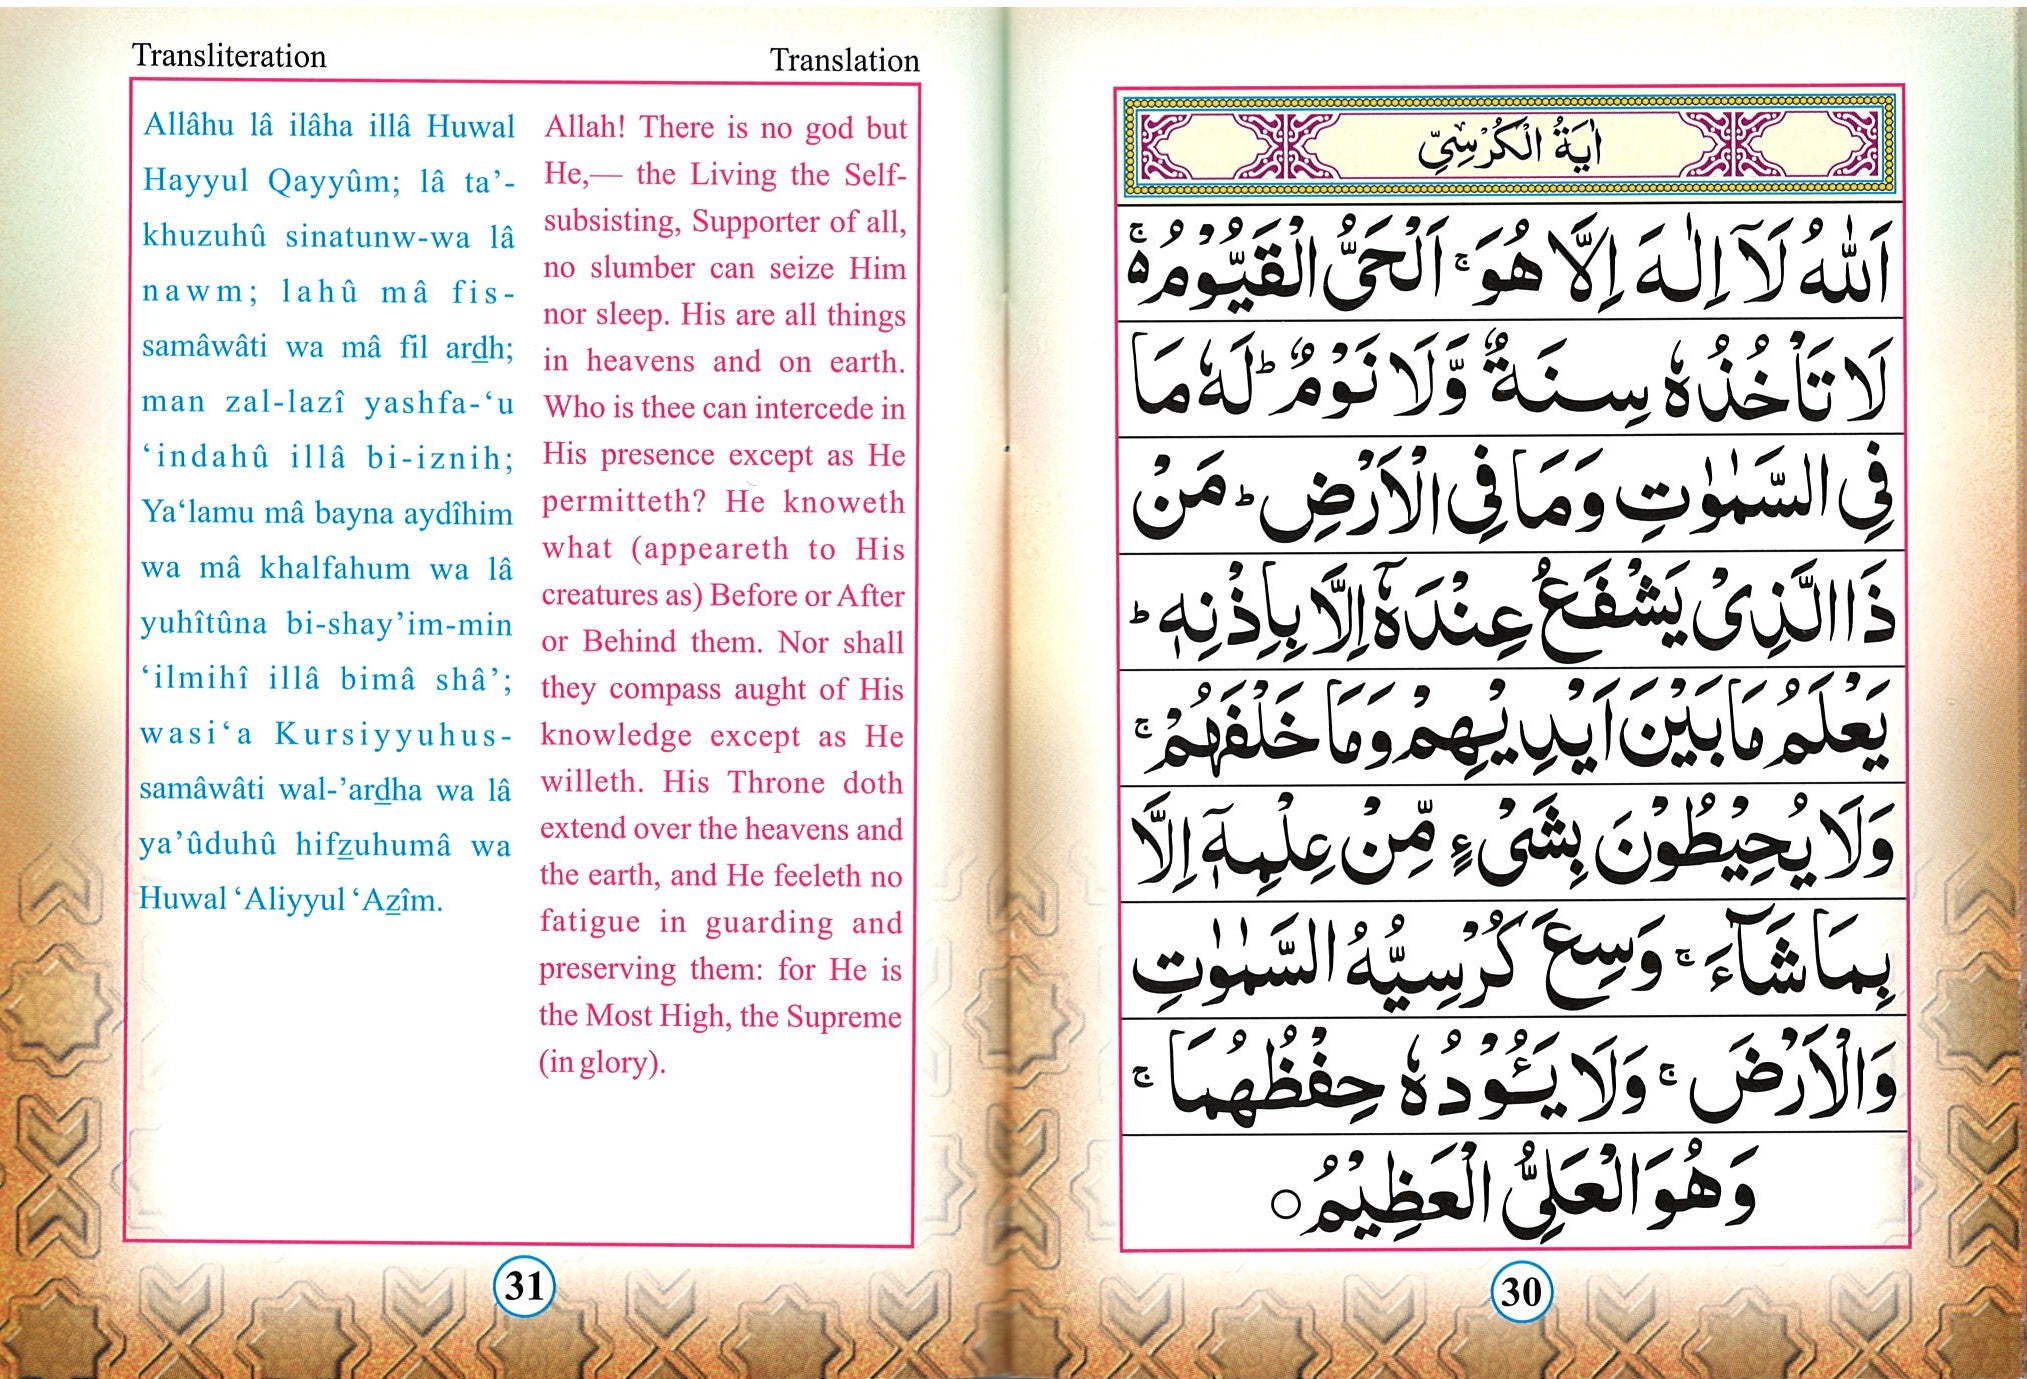 Transliteration
Translation
Allâhu lâ ilâha illâ Huwal
Hayyul Qayyûm; lâ ta’-
khuzuhû sinatunw-wa lâ
nawm; lahû mâ fis-
samâwâti wa mâ fil ardh;
man zal-lazî yashfa-‘u
‘indahû illâ bi-iznih;
Ya‘lamu mâ bayna aydîhim
wa mâ khalfahum wa lâ
yuhîtûna bi-shay’im-min
‘ilmihî illâ bimâ shâ’;
wasi‘a Kursiyyuhus-
samâwâti wal-’ardha wa lâ
ya’ûduhû hifzuhumâ wa
Huwal ‘Aliyyul ‘Azîm.
Allah! There is no god but
He,— the Living the Self-
subsisting, Supporter of all,
no slumber can seize Him
nor sleep. His are all things
in heavens and on earth.
Who is thee can intercede in
His presence except as He
permitteth? He knoweth
what (appeareth to His
creatures as) Before or After
or Behind them. Nor shall
they compass aught of His
knowledge except as He
willeth. His Throne doth
extend over the heavens and
the earth, and He feeleth no
fatigue in guarding and
preserving them: for He is
the Most High, the Supreme
(in glory).
31
اٰيَةُ الْكُرْسِيِّ
اَللّٰهُ لَآ اِلٰهَ اِلَّا هُوَ ۚ اَلْحَيُّ الْقَيُّوْمُ ۵ۚ
لَا تَاْخُذُهٗ سِنَةٌ وَّلَا نَوْمٌ ؕ لَهٗ مَا
فِى السَّمٰوٰتِ وَمَا فِى الْاَرْضِ ؕ مَنْ
ذَا الَّذِىْ يَشْفَعُ عِنْدَهٗٓ اِلَّا بِاِذْنِهٖ ؕ
يَعْلَمُ مَا بَيْنَ اَيْدِيْهِمْ وَمَا خَلْفَهُمْ ۚ
وَلَا يُحِيْطُوْنَ بِشَىْءٍ مِّنْ عِلْمِهٖٓ اِلَّا
بِمَا شَآءَ ۚ وَسِعَ كُرْسِيُّهُ السَّمٰوٰتِ
وَالْاَرْضَ ۚ وَلَا يَـُٔوْدُهٗ حِفْظُهُمَا ۚ
وَهُوَ الْعَلِىُّ الْعَظِيْمُ ○
30